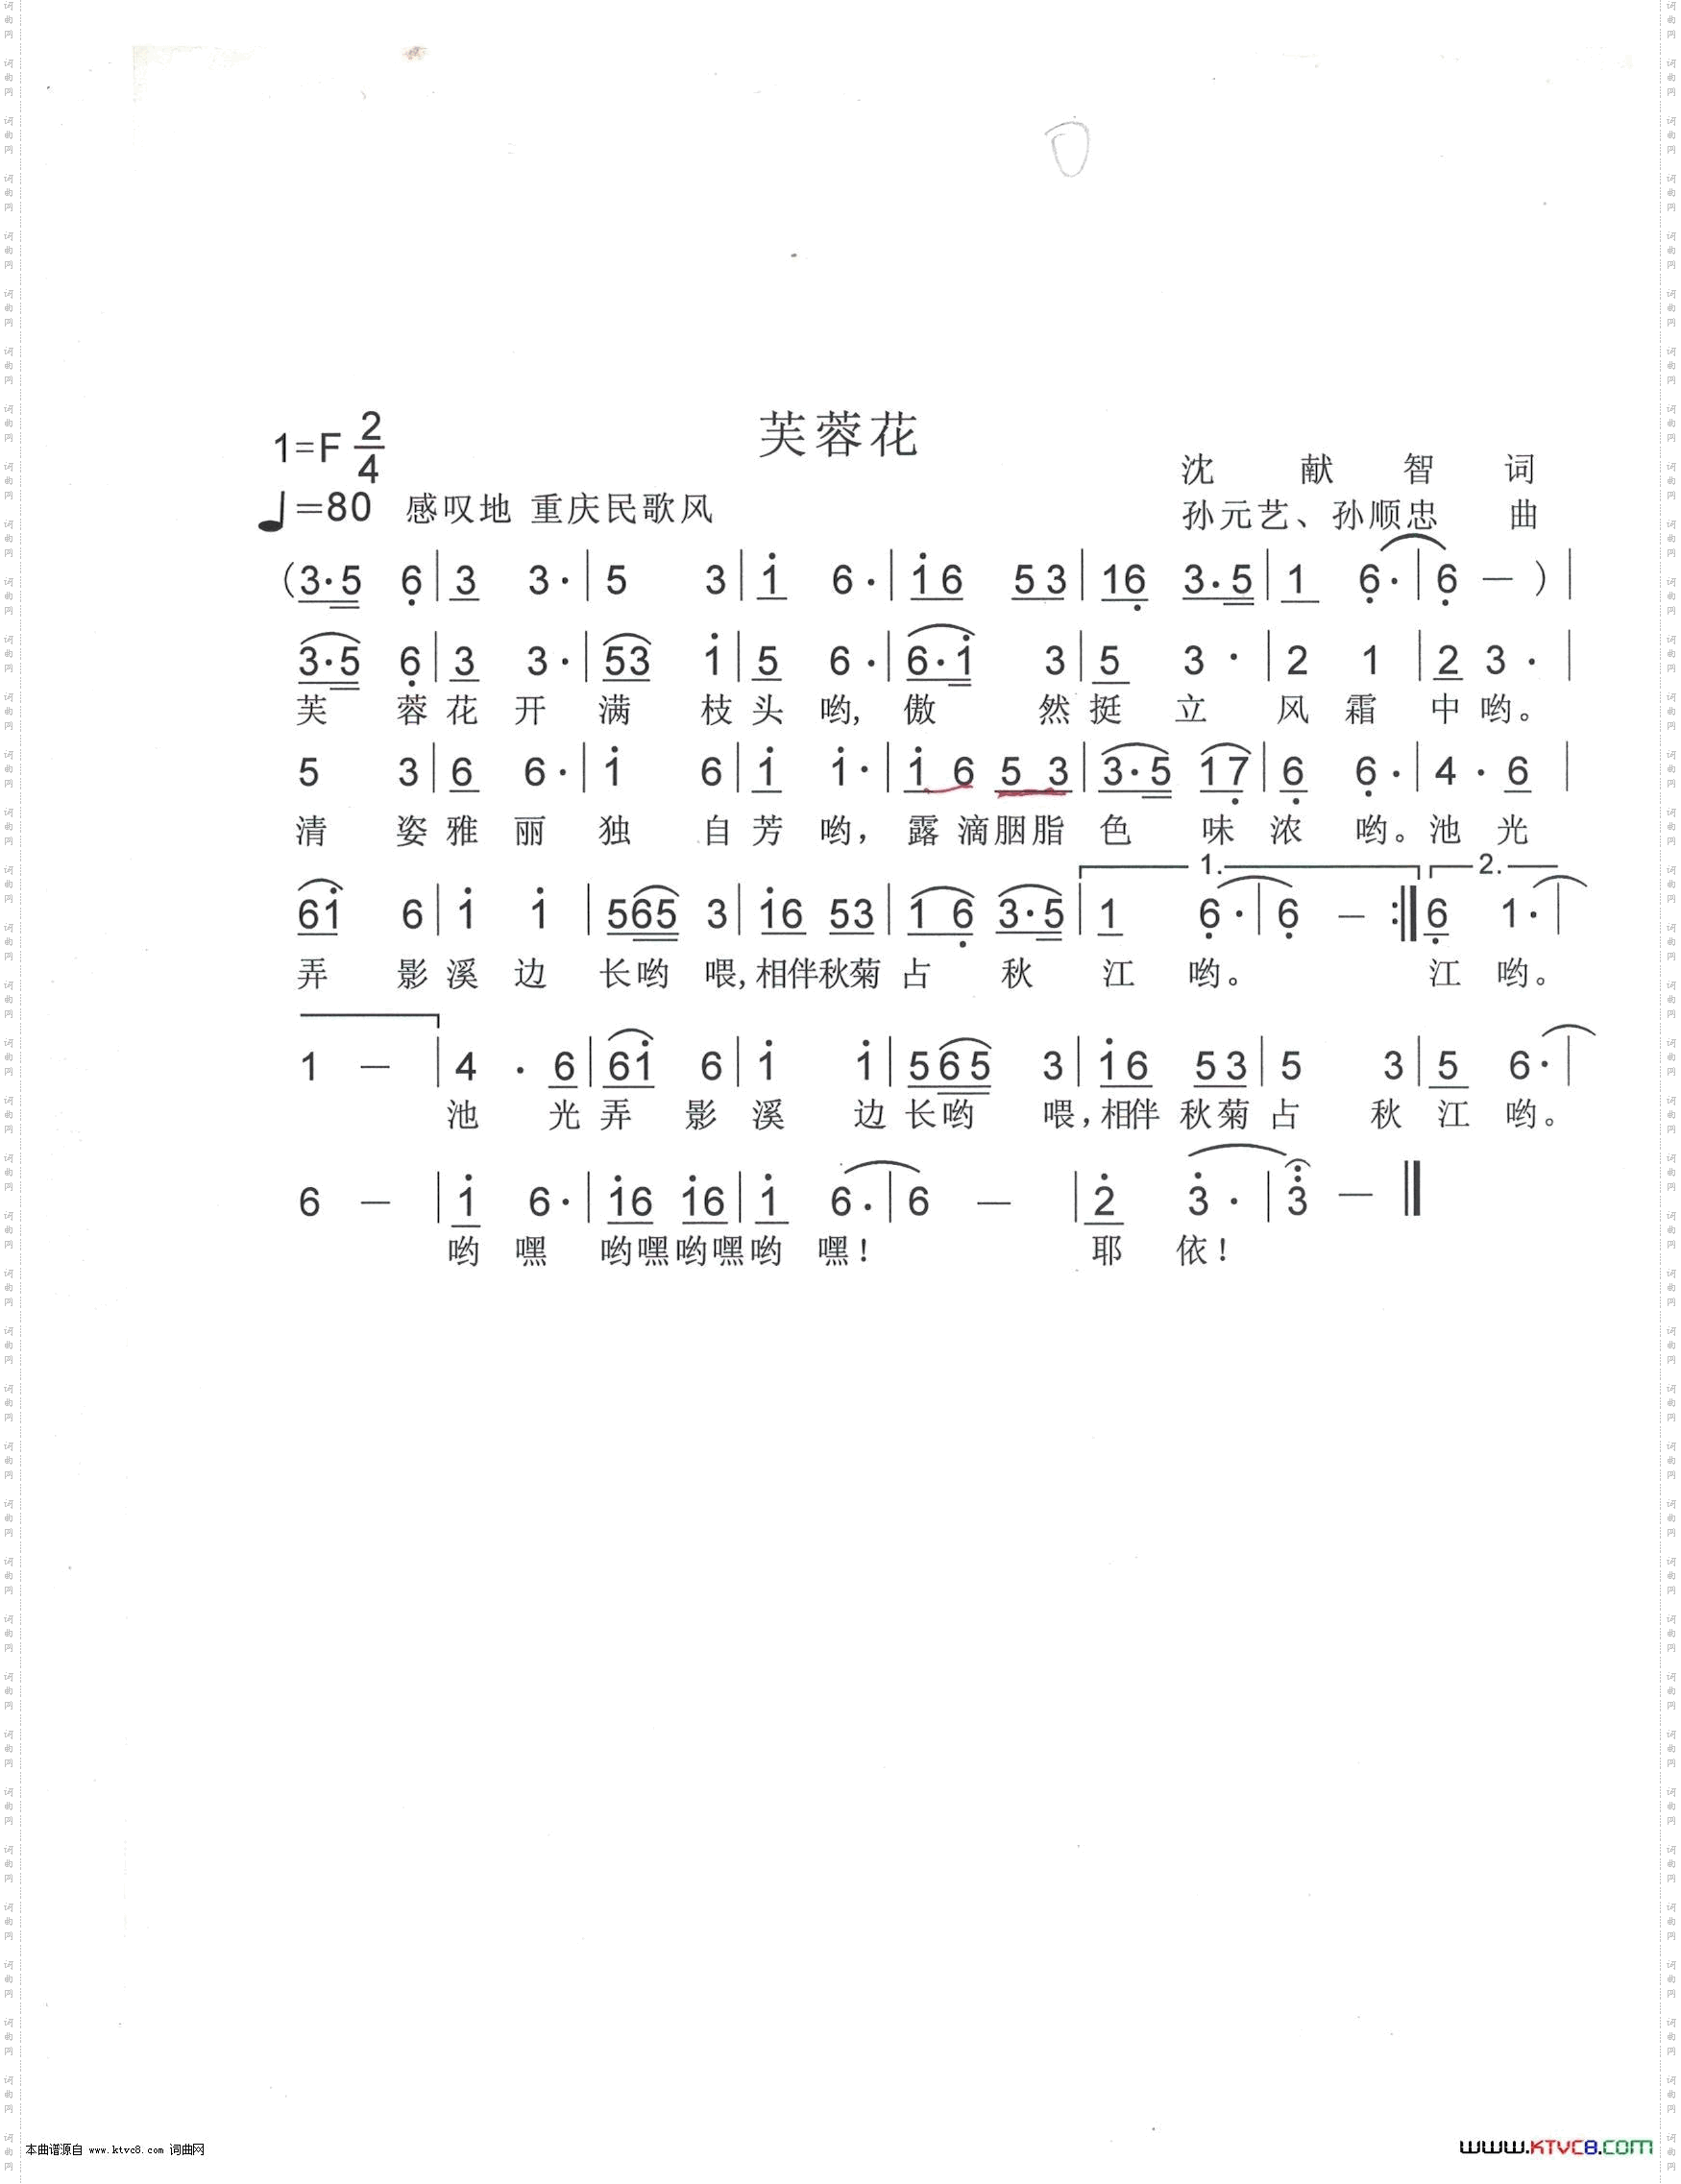 芙蓉花
1=F 2/4
沈献智 词
♩=80 感叹地 重庆民歌风
孙元艺、孙顺忠 曲
(3·5 6|3 3·|5 3|1 6·|16 53|16 3·5|1 6·|6 —)|
3·5 6|3 3·|53 1|5 6·|6·1 3|5 3·|2 1|2 3·|
芙 蓉 花 开 满 枝 头 哟, 傲 然 挺 立 风 霜 中 哟。
5 3|6 6·|1 6|1 1·|1 6 5 3|3·5 17|6 6·|4·6|
清 姿 雅 丽 独 自 芳 哟, 露 滴 胭 脂 色 味 浓 哟。池 光
1. 2.
61 6|1 1|565 3|16 53|1 6 3·5|1 6·|6 —:‖6 1·|
弄 影 溪 边 长 哟 喂,相伴秋菊 占 秋 江 哟。 江 哟。
1 —|4 · 6|61 6|1 1|565 3|16 53|5 3|5 6·|
池 光 弄 影 溪 边 长 哟 喂,相伴 秋 菊 占 秋 江 哟。
6 —|1 6·|16 16|1 6·|6 —|2 3·|3 —‖
哟 嘿 哟嘿哟嘿哟 嘿! 耶 依!
本曲谱源自 www.ktvc8.com 词曲网
www.KTVC8.COM